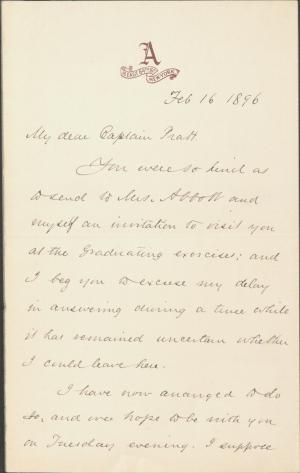 A
NEW YORK
Feb 16 1896
My dear Captain Pratt.
You were so kind as
to send to Mrs. Abbott and
myself an invitation to visit you
at the Graduating exercises; and
I beg you to excuse my delay
in answering during a time while
it has remained uncertain whether
I could leave here.
I have now arranged to do
so, and we hope to be with you
on Tuesday evening. I suppose